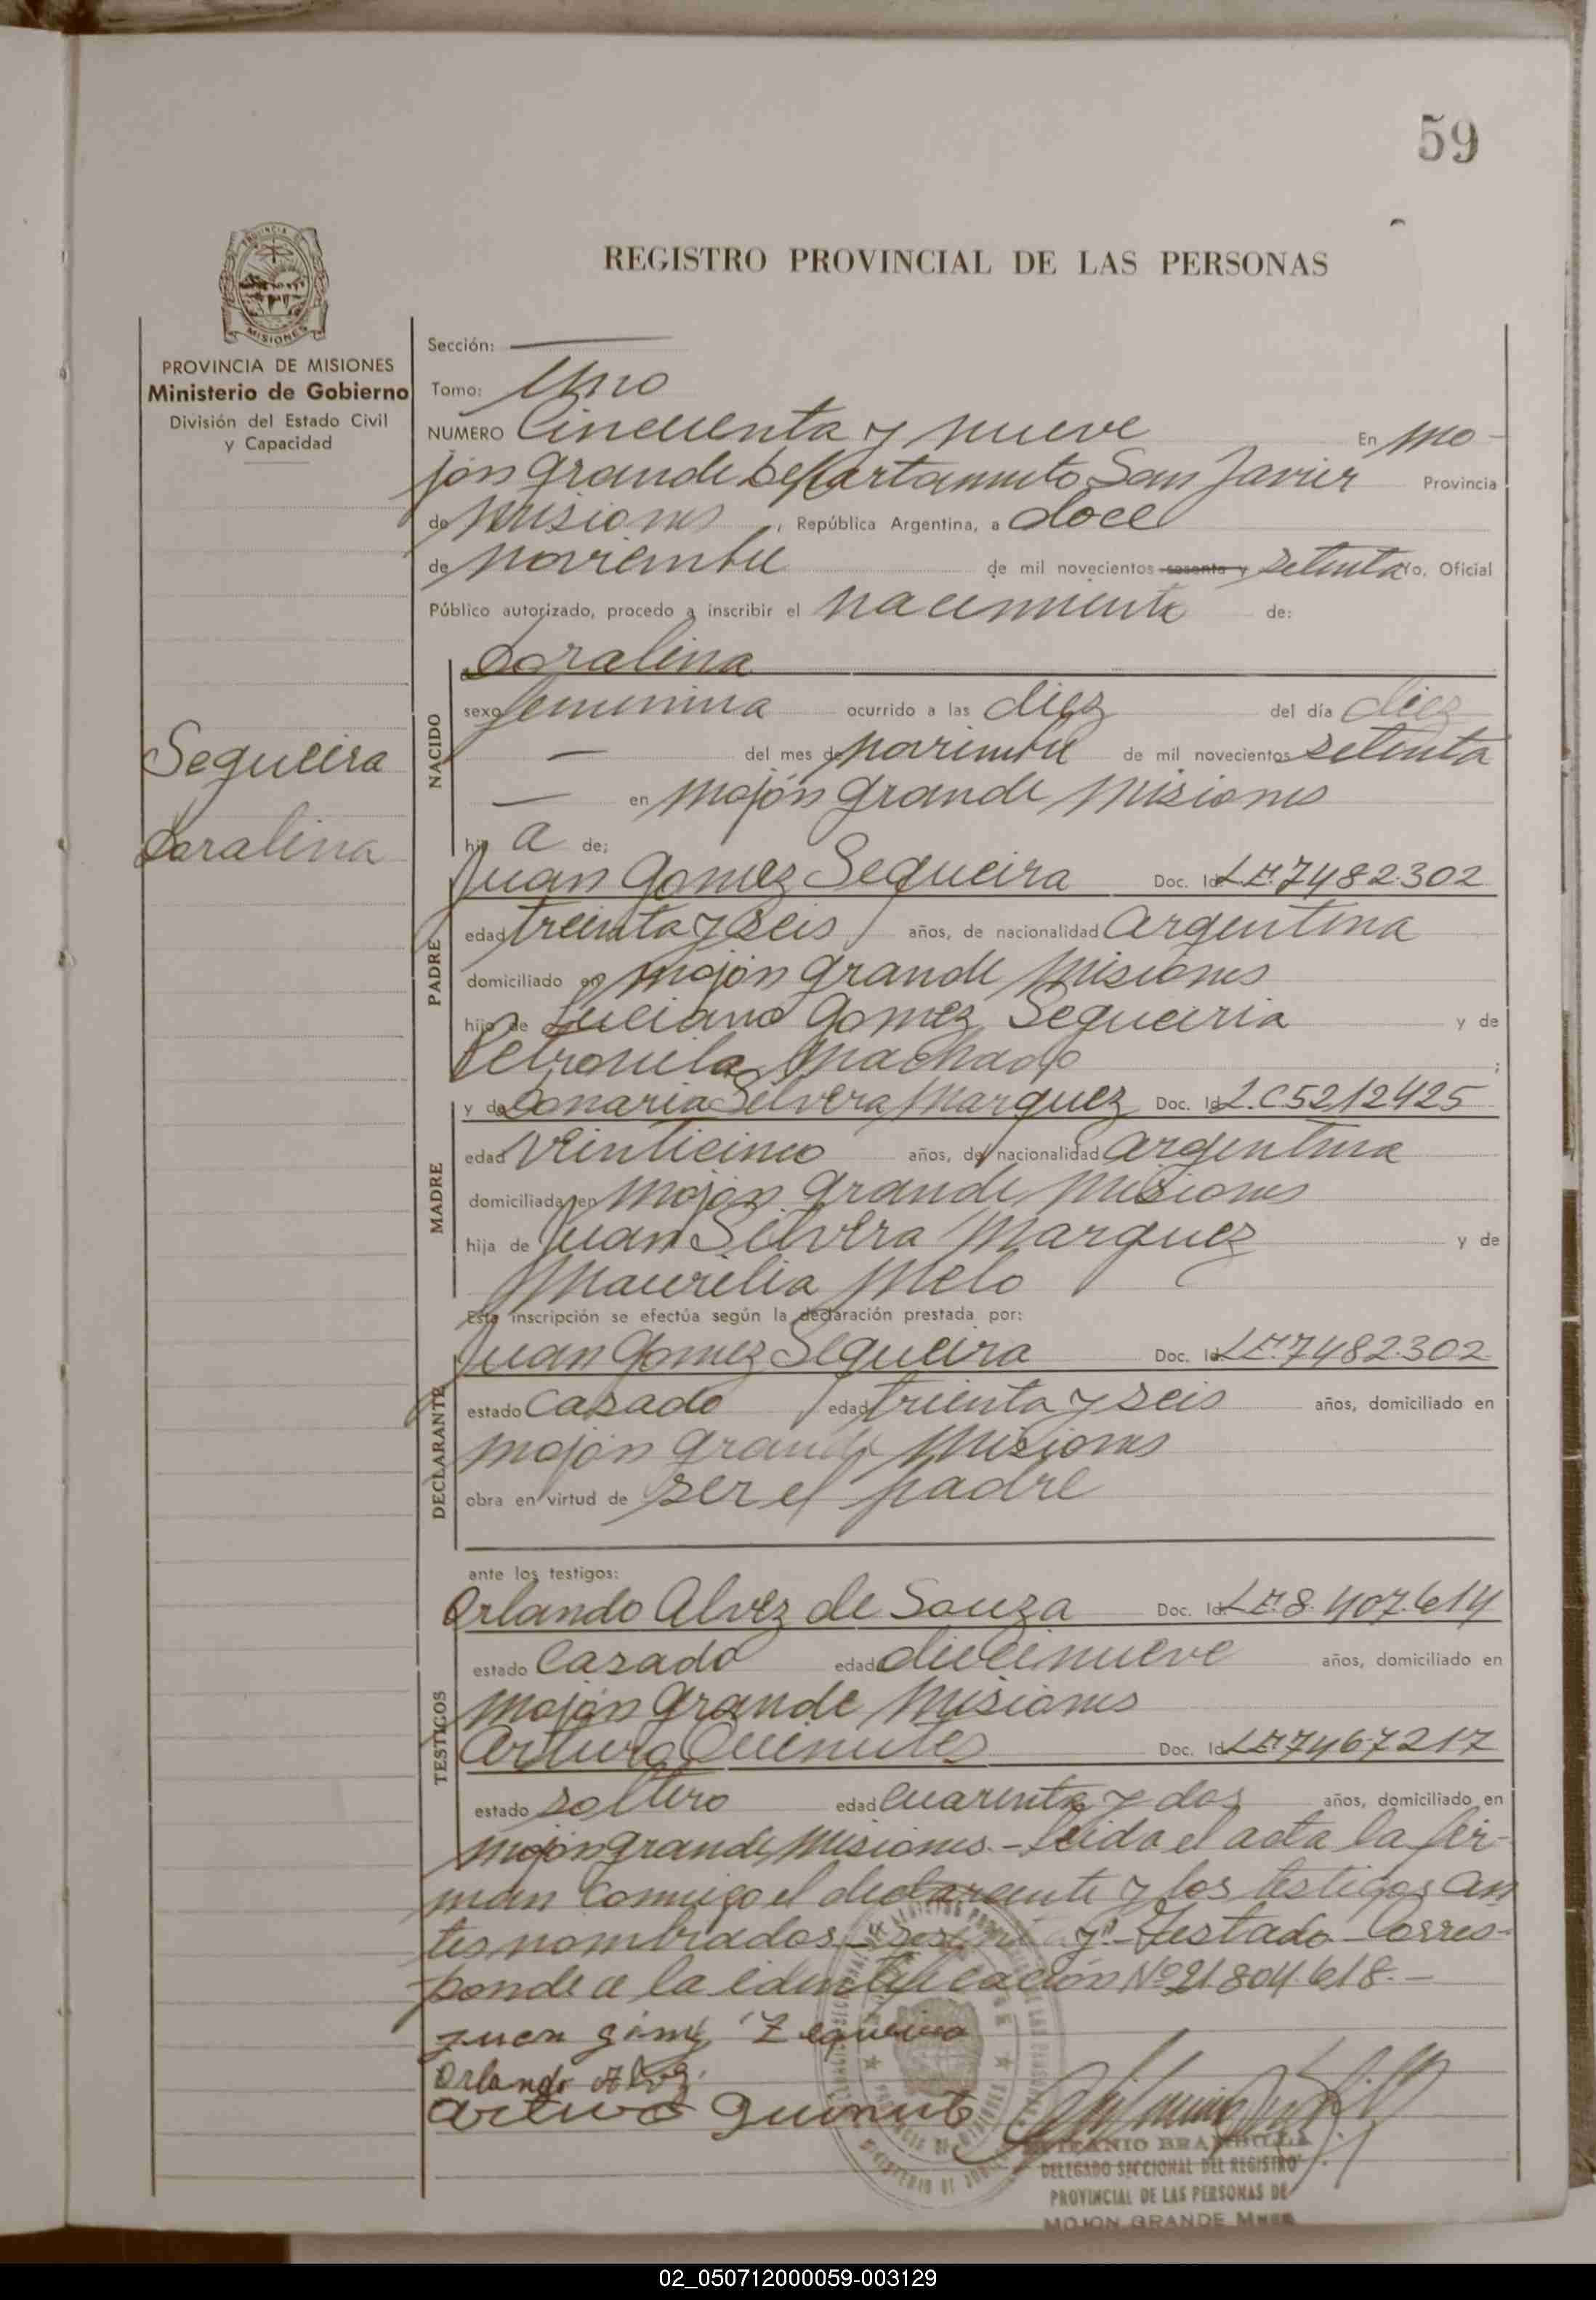 59
REGISTRO PROVINCIAL DE LAS PERSONAS
MISIONES
PROVINCIA DE MISIONES
Ministerio de Gobierno
División del Estado Civil
y Capacidad
Sequeira
Doralina
Sección:
Tomo: Uno
NUMERO Cincuenta y nueve En Mo-
jón Grande Departamento San Javier Provincia
de Misiones, República Argentina, a doce
de noviembre de mil novecientos sesenta y setenta yo, Oficial
Público autorizado, procedo a inscribir el nacimiento de:
Doralina
NACIDO
sexo femenina ocurrido a las diez del día diez
— del mes de noviembre de mil novecientos setenta
— en Mojón Grande Misiones
hij a de:
Juan Gomez Sequeira Doc. Id. L.E. 7482.302
PADRE
edad treinta y seis años, de nacionalidad Argentina
domiciliado en Mojón Grande Misiones
hijo de Luciano Gomez Sequeiria y de
Petronila Machado ;
y de Donaria Silvera Marquez Doc. Id. L.C 5212425
MADRE
edad veinticinco años, de nacionalidad Argentina
domiciliada en Mojón Grande Misiones
hija de Juan Silvera Marquez y de
Maurilia Melo
Esta inscripción se efectúa según la declaración prestada por:
Juan Gomez Sequeira Doc. Id. L.E. 7482.302
DECLARANTE
estado Casado edad treinta y seis años, domiciliado en
Mojón Grande Misiones
obra en virtud de ser el padre
ante los testigos:
Orlando Alvez de Souza Doc. Id. L.E. 8.407.614
TESTIGOS
estado Casado edad diecinueve años, domiciliado en
Mojón Grande Misiones
Arturo Doc. Id. L.E. 7467217
estado soltero edad cuarenta y dos años, domiciliado en
Mojón Grande, Misiones.- Leida el acta la fir-
man conmigo el declarante y los testigos an
tes nombrados. y"- Testado- Corres-
ponde a la identificación Nº 21.804.618.-
Orlando Alvez
Arturo
BRAMBILLA
DELEGADO SECCIONAL DEL REGISTRO
PROVINCIAL DE LAS PERSONAS DE
MOJON GRANDE Mnes
02_050712000059-003129